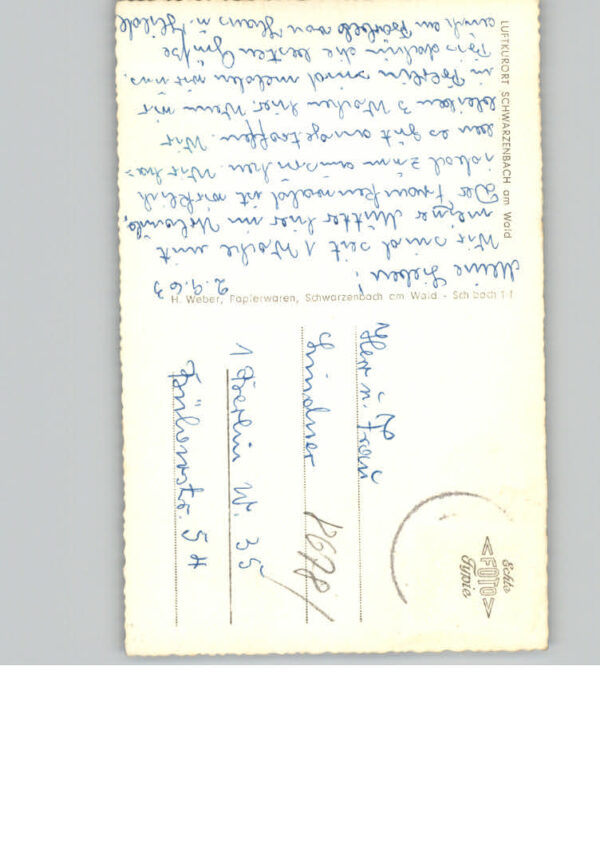 LUFTKURORT SCHWARZENBACH am Wald
2.9.63
Meine Lieben!
Wir sind seit 1 Woche mit
meiner Mutter hier im Urlaub,
Der Frankenwald ist wirklich
ideal zum ausruhen. Wir ha=
ben es gut angetroffen. Wir
bleiben 3 Wochen hier Wenn wir
in Berlin sind melden wir uns.
Bis dahin die besten Grüße
auch an Bärbel von Hans u.
H. Weber, Papierwaren, Schwarzenbach am Wald - Schbach 11
Echte
FOTO
Typie
Herr u. Frau
Lindner
1 Berlin W. 35
Bülowstr. 54
12678/